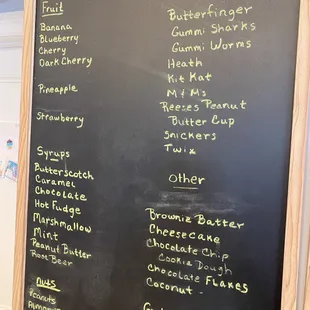 Fruit
Banana
Blueberry
Cherry
Dark Cherry
Pineapple
Strawberry
Syrups
Butterscotch
Caramel
Chocolate
Hot Fudge
Marshmallow
Mint
Peanut Butter
Root Beer
nuts
Peanuts
Butterfinger
Gummi Sharks
Gummi Worms
Heath
Kit Kat
M+Ms
Reeses Peanut
Butter Cup
Snickers
Twix
Other
Brownie Batter
Cheesecake
Chocolate Chip
Cookie Dough
Chocolate Flakes
Coconut